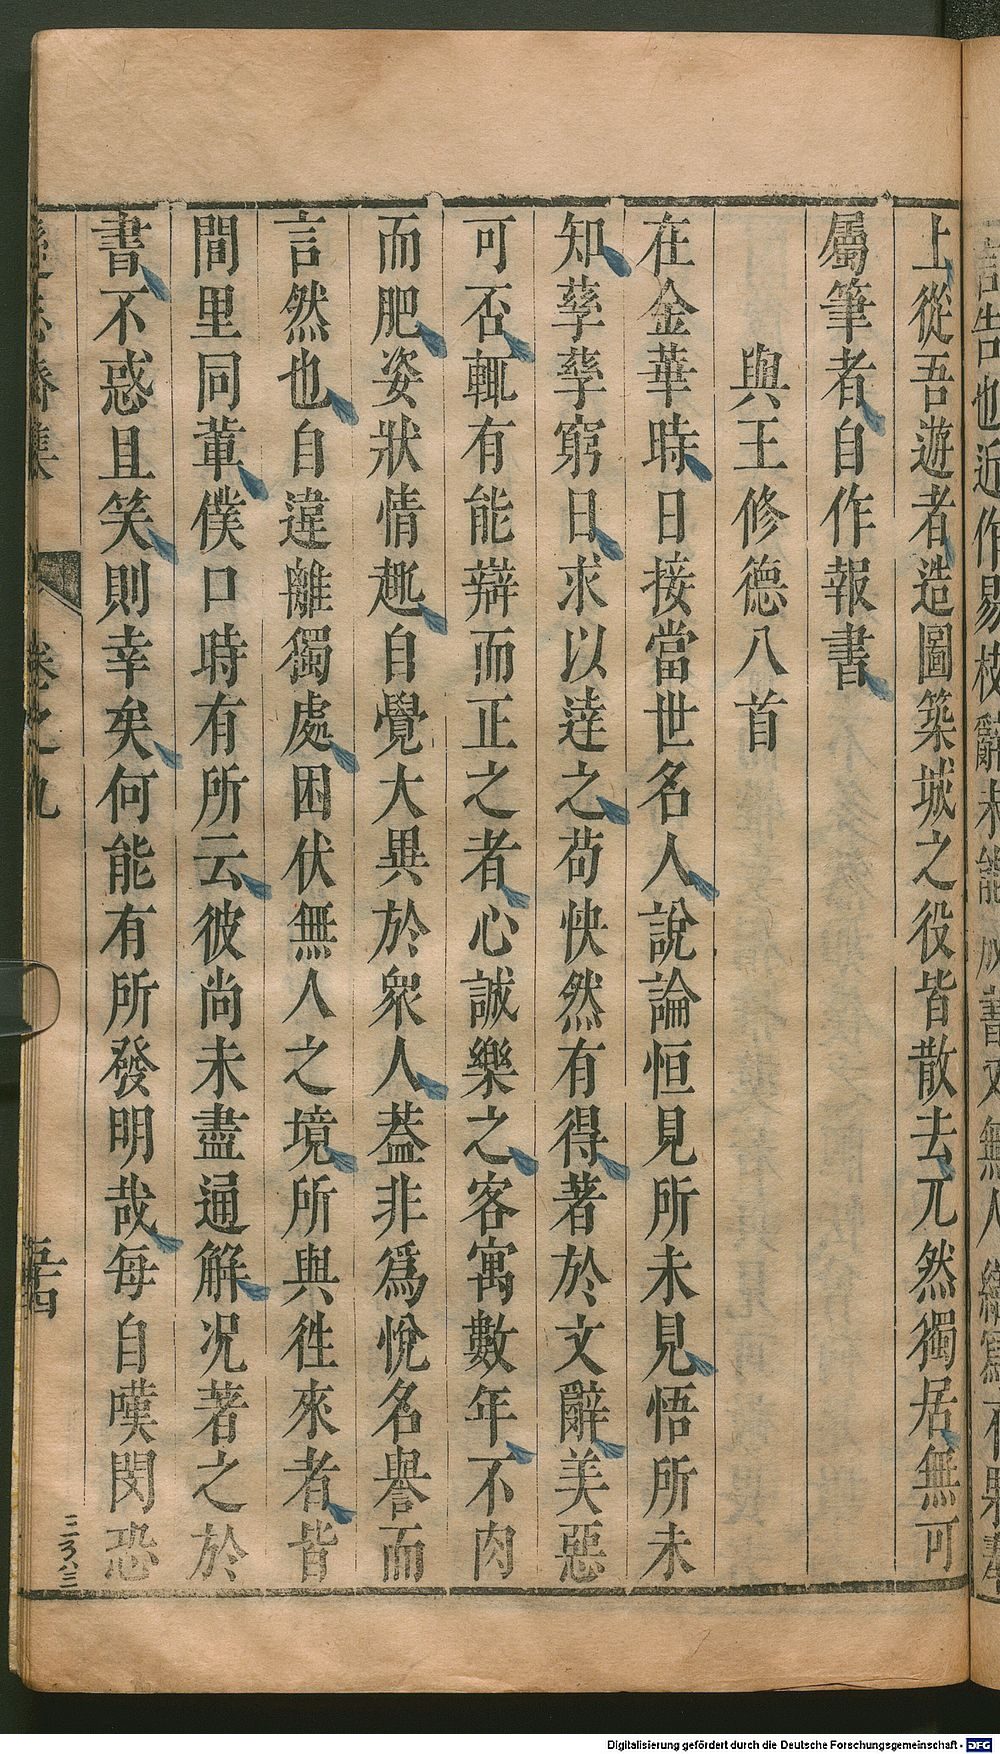 上從吾遊者造圖築城之役皆散去兀然獨居無可
屬筆者自作報書
與王修德八首
在金華時日接當世名人說論恒見所未見悟所未
知孳孳窮日求以達之苟快然有得著於文辭美惡
可否輒有能辯而正之者心誠樂之客寓數年不肉
而肥姿狀情趣自覺大異於衆人葢非爲悅名譽而
言然也自違離獨處困伏無人之境所與徃來者皆
閭里同軰僕口時有所云彼尚未盡通解况著之於
書不惑且笑則幸矣何能有所發明哉每自嘆閔恐
遜志齋集 卷之九 五十四
二二八三
告也近作易枝辭未能成書又無人繕寫
Digitalisierung gefördert durch die Deutsche Forschungsgemeinschaft - DFG